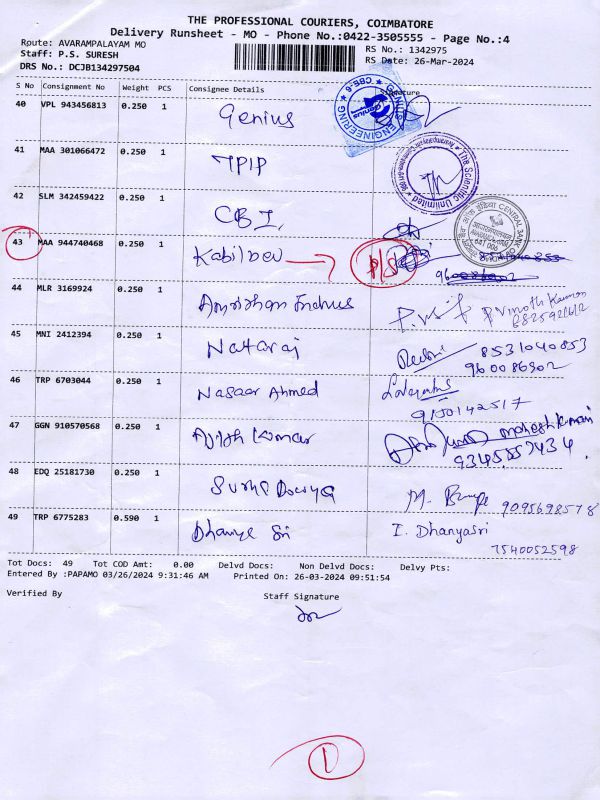 THE PROFESSIONAL COURIERS, COIMBATORE
Delivery Runsheet - MO - Phone No.:0422-3505555 - Page No.:4
Route: AVARAMPALAYAM MO
Staff: P.S. SURESH
DRS No.: DCJB134297504
RS No.: 1342975
RS Date: 26-Mar-2024
S No Consignment No Weight PCS Consignee Details Signature
40 VPL 943456813 0.250 1 Genius
GENIUS ENGINEERING CBE-6
41 MAA 301066472 0.250 1 TPIP
The Scientific Unlimited
42 SLM 342459422 0.250 1 CBI
CENTRAL BANK
43 MAA 944740468 0.250 1 Kabil Dev
9600086302
44 MLR 3169924 0.250 1
P Vinoth Kumar
45 MNI 2412394 0.250 1 Nataraj
8531040853
9600086302
46 TRP 6703044 0.250 1 Nasaar Ahmed
9150142517
47 GGN 910570568 0.250 1 Ajith Kumar
Mahesh Kumar
48 EDQ 25181730 0.250 1
M. 9095698578
49 TRP 6775283 0.590 1 Dhanya Sri
I. Dhanyasri
7540052598
Tot Docs: 49 Tot COD Amt: 0.00 Delvd Docs: Non Delvd Docs: Delvy Pts:
Entered By :PAPAMO 03/26/2024 9:31:46 AM Printed On: 26-03-2024 09:51:54
Verified By Staff Signature
1